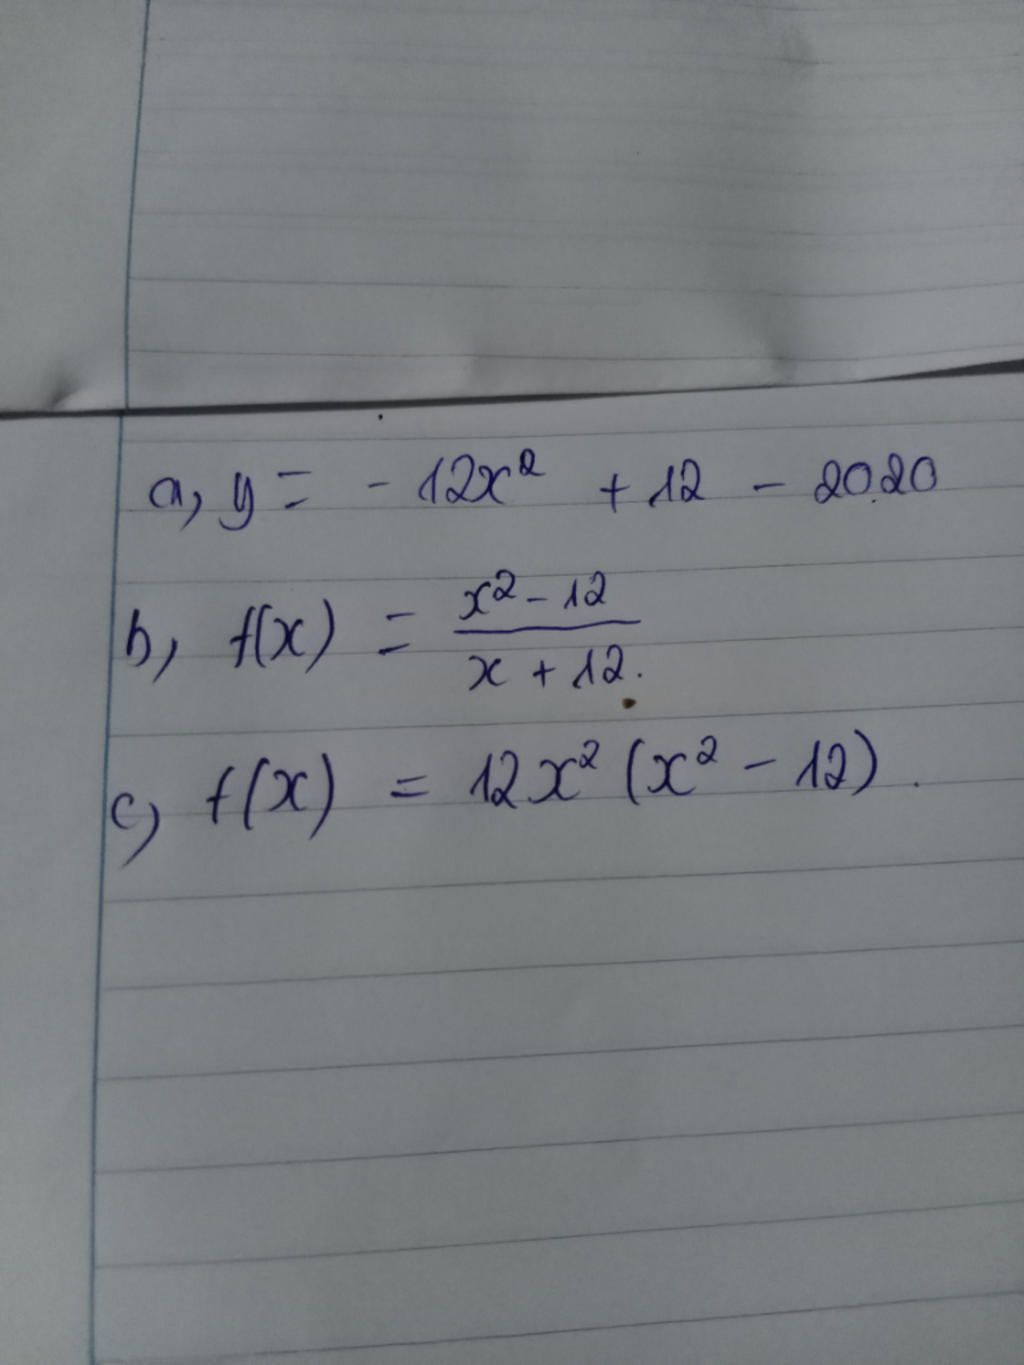 a, y = - 12x² + 12 - 2020
b, f(x) = \frac{x² - 12}{x + 12}.
c, f(x) = 12x² (x² - 12).